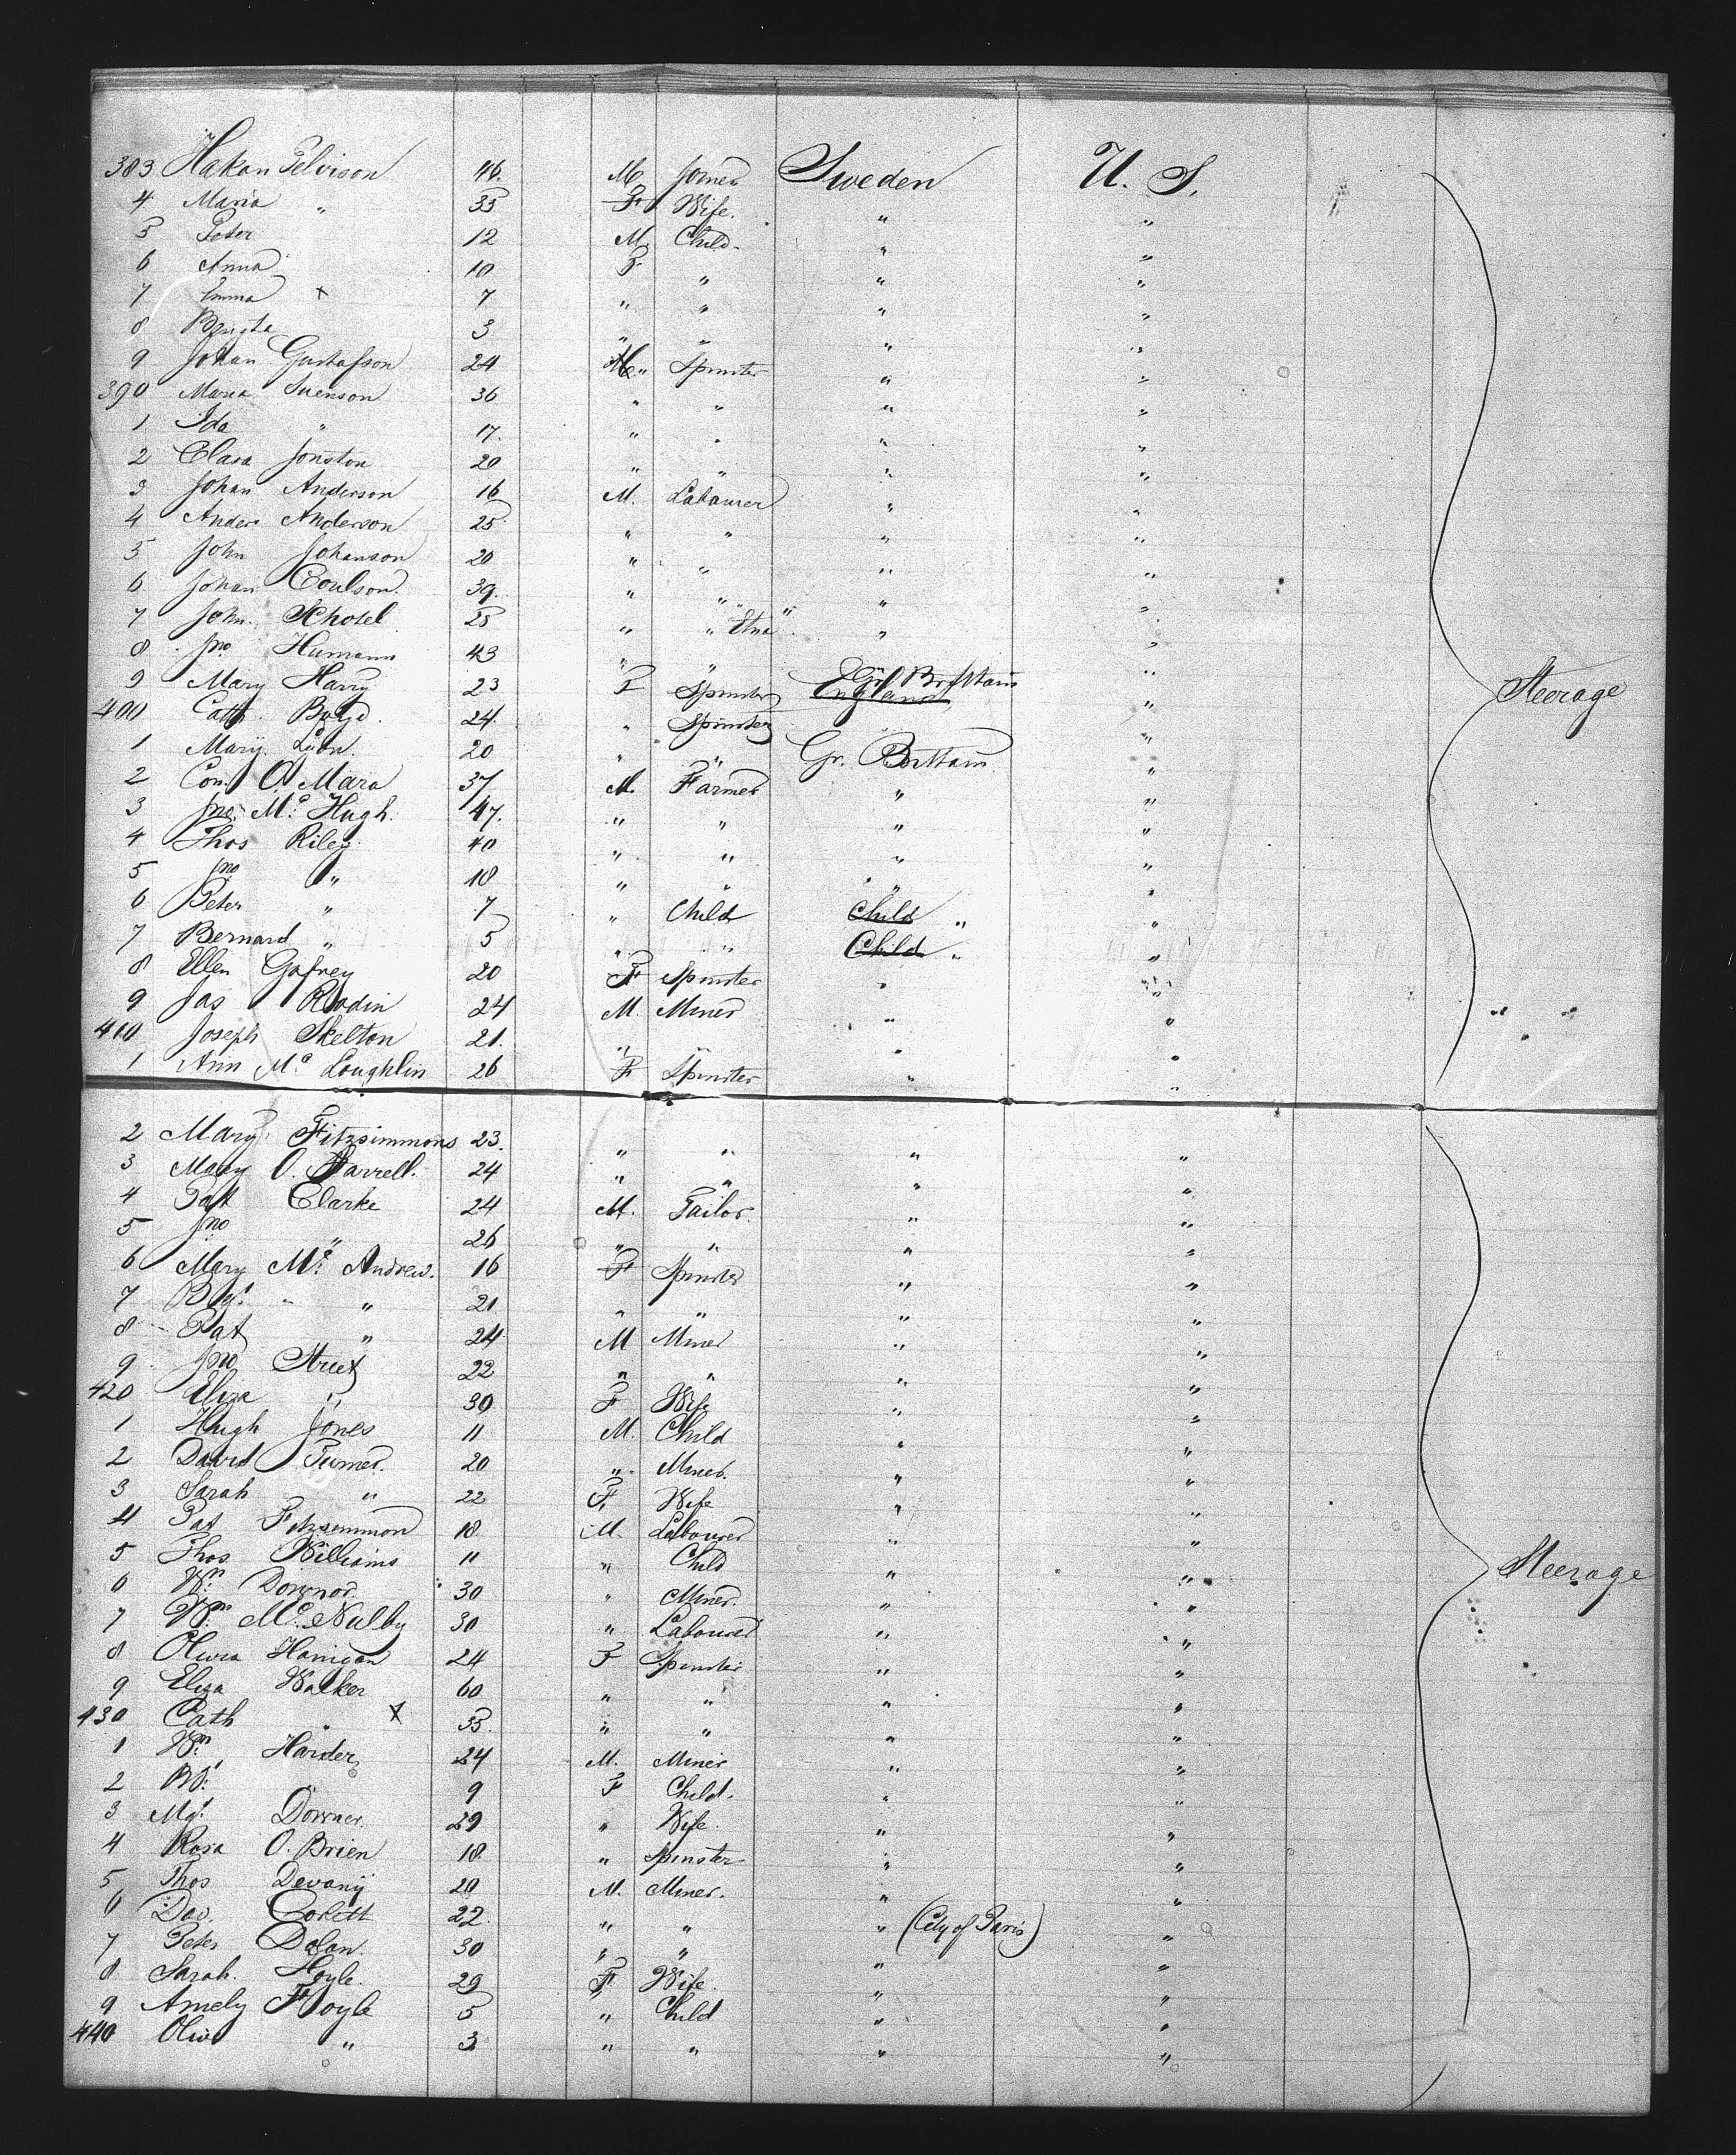 383 Hakan Pelvison 46. M Joiner Sweden U. S.
4 Maria " 35 F Wife. " "
5 Peter 12 M. Child. " "
6 Anna 10 F " " "
7 Emma x 7 " " " "
8 Bengta 3 " " " "
9 Johan Gustafson 24 " Spinster " "
390 Maria Svenson 36 " " " "
1 Ida " 17. " " " "
2 Clara Jonston 20 " " " "
3 Johan Anderson 16 M. Labourer " "
4 Anders Anderson 25 " " " "
5 John Johanson 20 " " " "
6 Johan Coulson. 39. " " " "
7 John Schotel 25 " " "Etna" " "
8 Jno Humann 43 " " "
9 Mary Harry 23 F Spinster England Gr. Brittain "
400 Cath. Boyd. 24. " Spinster "
1 Mary Lyon. 20 " " Gr. Brittain "
2 Con. O. Mara 37 M. Farmer " "
3 Jno. Mc. Hugh. 47. " " " "
4 Thos Riley 40 " " " "
5 Jno " 18 " " " "
6 Peter " 7 " Child Child " "
7 Bernard " 5 " " Child " "
8 Ellen Gafney 20 F Spinster " "
9 Jas Rodin 24 M. Miner " "
410 Joseph Skelton 21. " " " "
1 Ann Mc Loughlin 26 F Spinster " "
Steerage
2 Mary Fitzsimmons 23. " " " "
3 Mary O. Farrell. 24 " " " "
4 Patk Clarke 24 M. Tailor. " "
5 Jno " 26 " " " "
6 Mary Mc. Andrew. 16 F Spinster " "
7 Bgt. " 21 " " " "
8 Pat " 24 M Miner " "
9 Jno Street 22 " " " "
420 Eliza " 30 F Wife " "
1 Hugh Jones 11 M. Child " "
2 David Turner. 20 " Miner. " "
3 Sarah " 22 F. Wife " "
4 Pat Fitzsimmon 18 M. Labourer " "
5 Thos Williams 11 " Child " "
6 Wm. Downer 30 " Miner. " "
7 Wm. Mc. Nulby 30 " Labourer " "
8 Olivia Hanigan 24 F Spinster " "
9 Eliza Walker 60 " " " "
430 Cath " x 35. " " " "
1 Wm. Harder 24 M. Miner " "
2 " 9 F Child. " "
3 Mgt. Downer. 29 " Wife. " "
4 Rosa O. Brien 18 " Spinster " "
5 Thos Devany 20 M. Miner. " "
6 Dav. Corlett 22. " " " (City of Paris) "
7 Peter Dolan. 30 " " " "
8 Sarah. Hoyle. 29 F Wife. " "
9 Amely Hoyle 5 " Child " "
440 Olive " 3 " " " "
Steerage